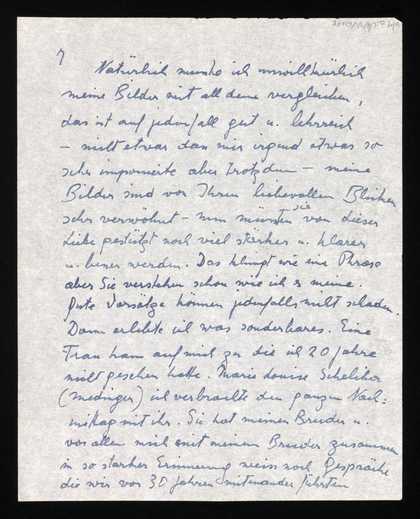 7
Natürlich musste ich unwillkürlich
meine Bilder mit all dem vergleichen,
das ist auf jeden fall gut u. lehrreich
– nicht etwa dass mir irgend etwas so
sehr imponierte aber trotzdem – meine
Bilder sind vor Ihren liebevollen Blicken
sehr verwöhnt – nun müssten sie von dieser
Liebe gestützt noch viel stärker u. klarer
u. besser werden. Das klingt wie eine Phrase
aber Sie verstehen schon wie ich es meine.
Gute Vorsätze können jedenfalls nicht schaden.
Dann erlebte ich was sonderbares. Eine
Frau kam auf mich zu die ich 20 Jahre
nicht gesehen hatte. Marie Louise
(                ) ich verbrachte den ganzen Nach=
mittag mit ihr. Sie hat meinen Bruder u.
vor allem mich mit meinem Bruder zusammen
in so starker Erinnerung weiss noch Gespräche
die wir vor 30 Jahren miteinander führten